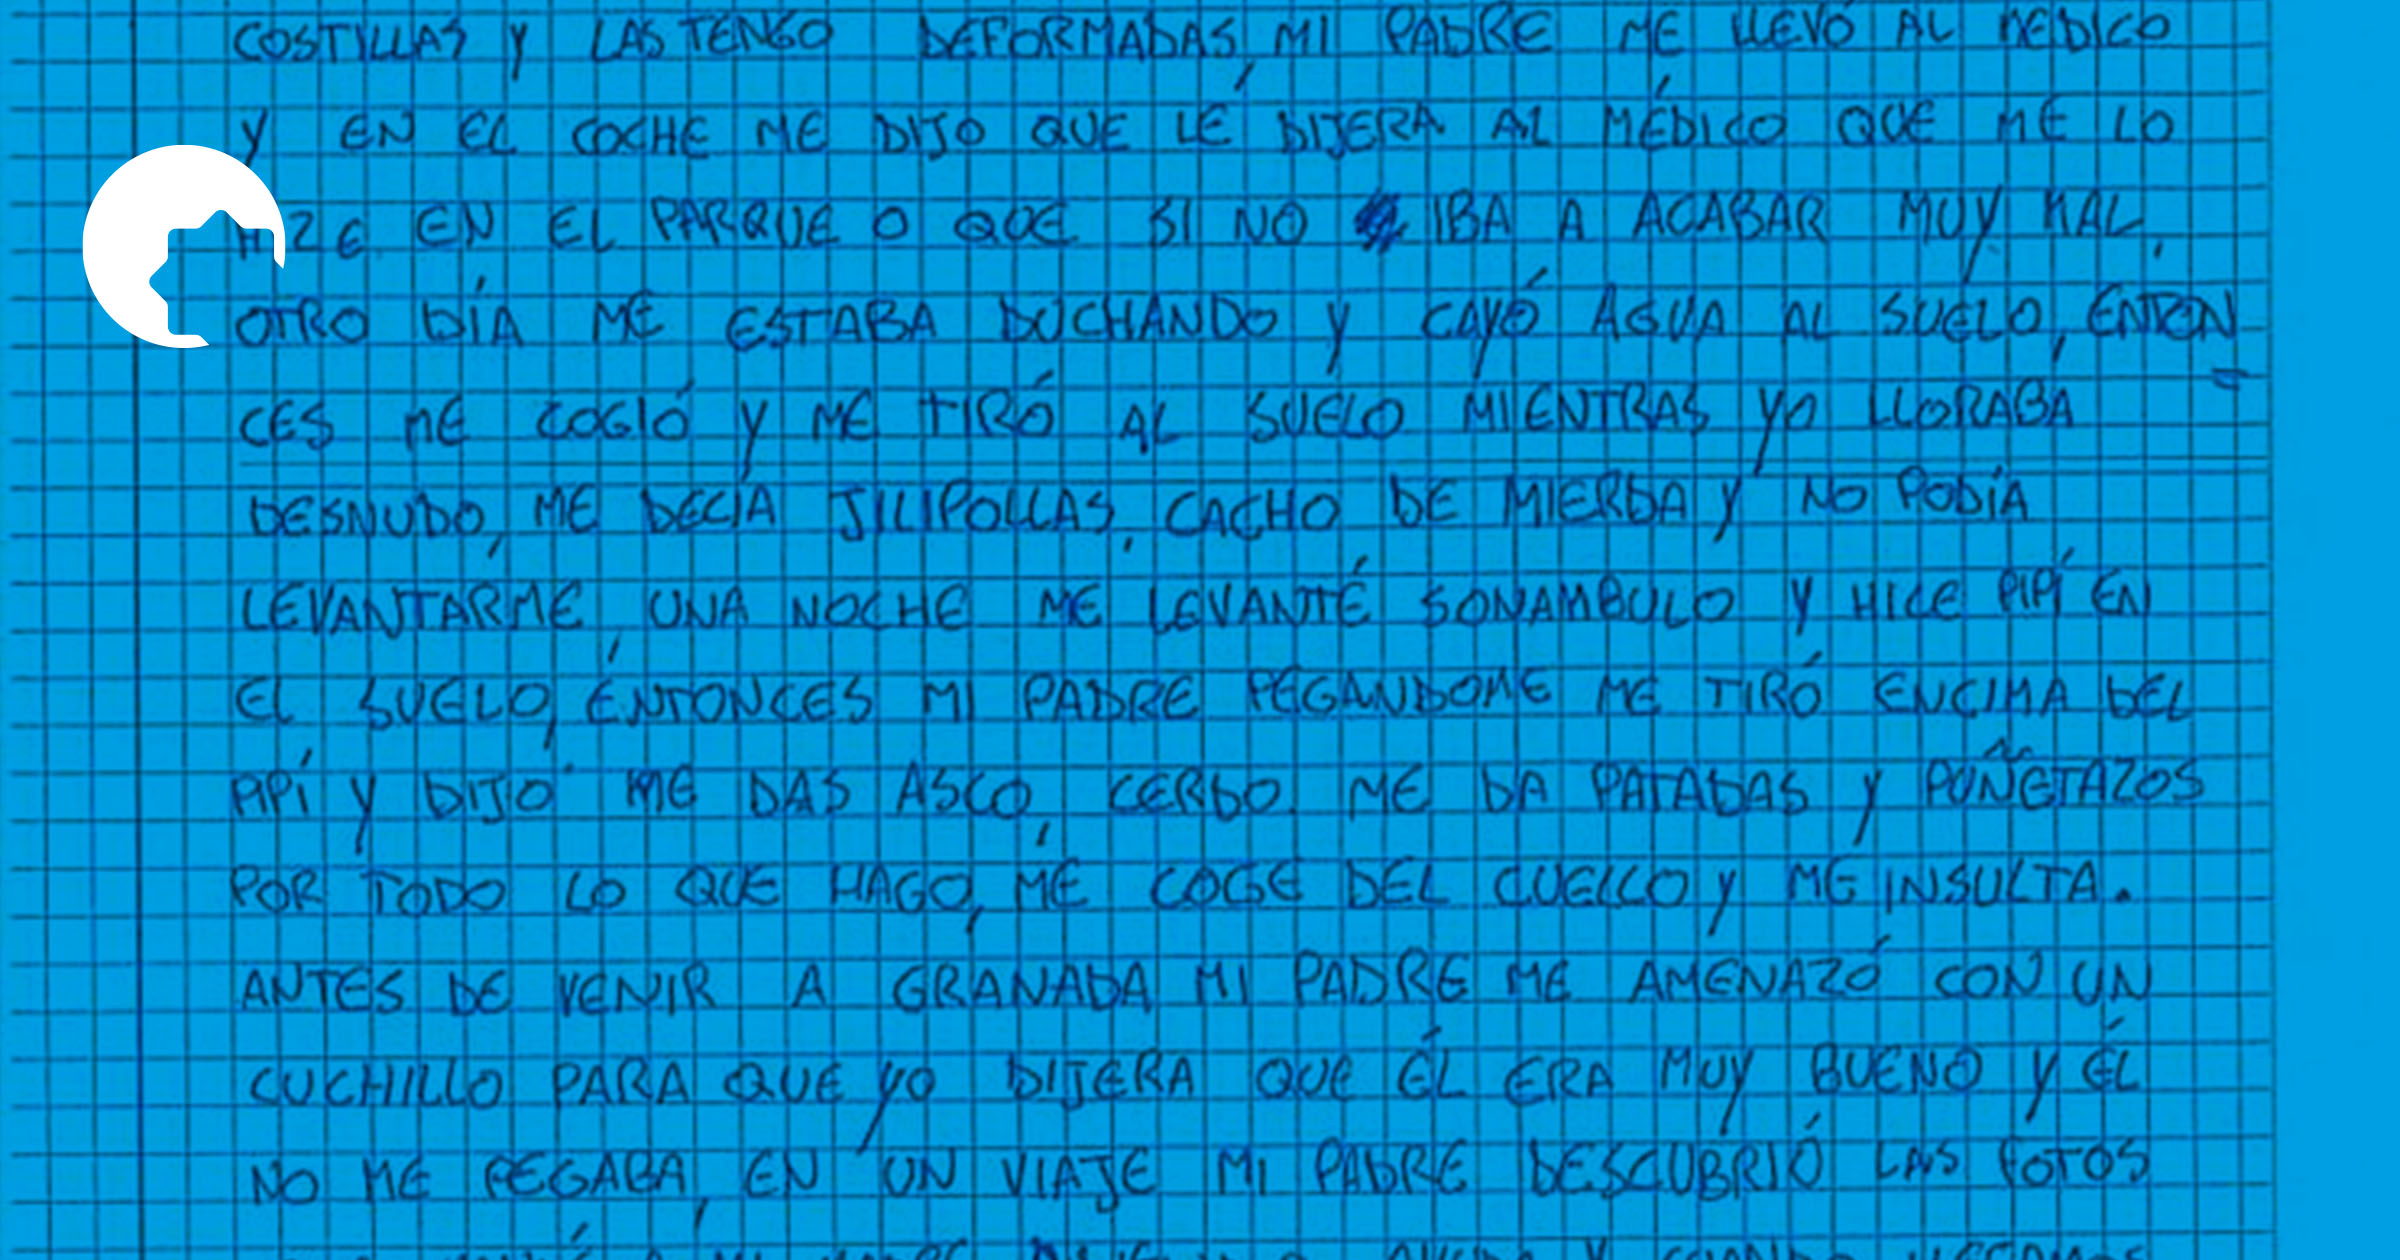 COSTILLAS Y LAS TENGO DEFORMADAS, MI PADRE ME LLEVÓ AL MEDICO
Y EN EL COCHE ME DIJO QUE LE DIJERA AL MÉDICO QUE ME LO
HIZE EN EL PARQUE O QUE SI NO IBA A ACABAR MUY MAL,
OTRO DÍA ME ESTABA DUCHANDO Y CAYÓ AGUA AL SUELO, ENTON-
CES ME COGIÓ Y ME TIRÓ AL SUELO MIENTRAS YO LLORABA
DESNUDO, ME DECIA JILIPOLLAS, CACHO DE MIERDA Y NO PODÍA
LEVANTARME, UNA NOCHE ME LEVANTÉ SONAMBULO Y HICE PIPÍ EN
EL SUELO, ENTONCES MI PADRE PEGANDOME ME TIRÓ ENCIMA DEL
PIPÍ Y DIJO ME DAS ASCO, CERDO. ME DA PATADAS Y PUÑETAZOS
POR TODO LO QUE HAGO, ME COGE DEL CUELLO Y ME INSULTA.
ANTES DE VENIR A GRANADA MI PADRE ME AMENAZÓ CON UN
CUCHILLO PARA QUE YO DIJERA QUE ÉL ERA MUY BUENO Y ÉL
NO ME PEGABA, EN UN VIAJE MI PADRE DESCUBRIÓ LAS FOTOS